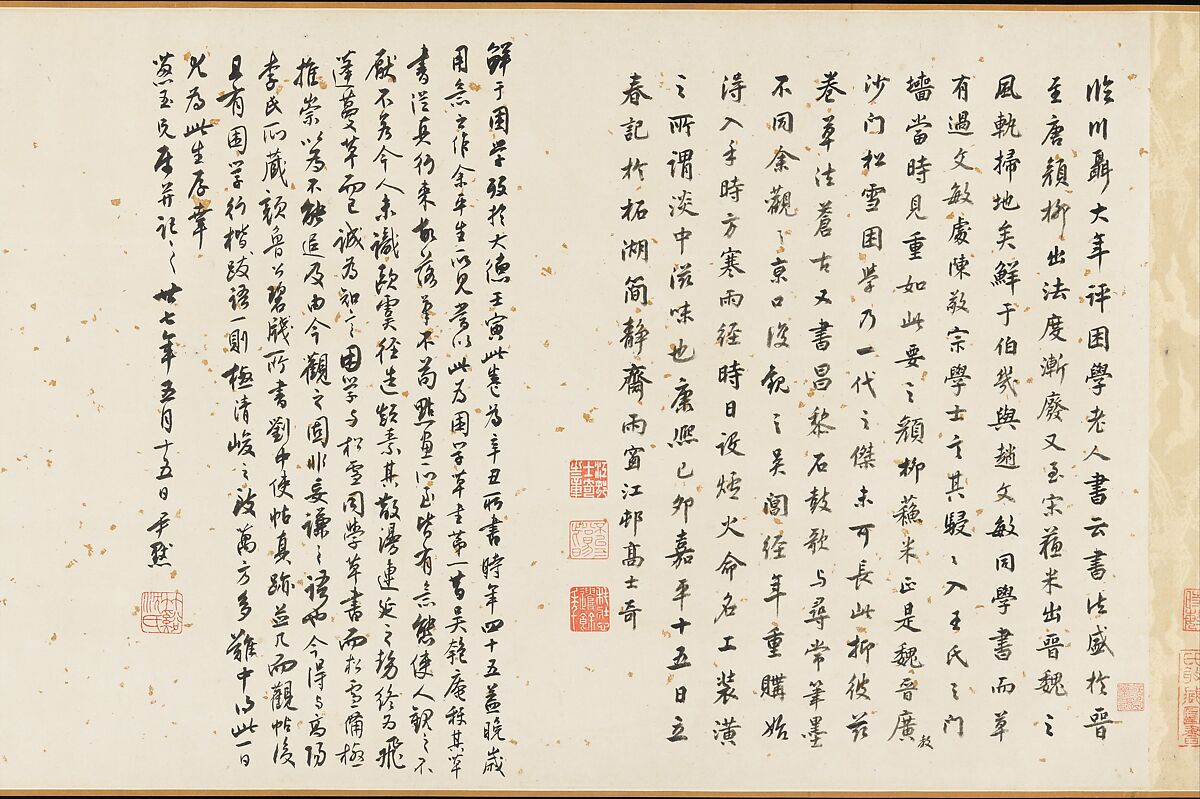 臨川聶大年評困學老人書云書法盛於晉
至唐顏柳出法度漸廢又至宋蘇米出晉魏之
風軌掃地矣鮮于伯幾與趙文敏同學書而草
有過文敏處陳敬宗學士言其駸〻入王氏之門
墻當時見重如此要之顏柳蘇米正是魏晉廣
教
沙門松雪困學乃一代之傑未可長此抑彼茲
卷草法蒼古又書昌黎石鼓歌与尋常筆墨
不同余觀之京口後觀之吳閶經年重購始
得入手時方寒雨經時日設爐火命名工裝潢
之所謂淡中滋味也康熙己卯嘉平十五日立
春記於柘湖簡靜齋雨窗江邨高士奇
鮮于困學歿於大德壬寅此卷為辛丑所書時年四十五蓋晚歲
用意之作余平生所見當以此為困學草書第一昔吳匏庵称其草
書從真行來故落筆不苟點畫所至皆有意態使人觀之不
厭不若今人未識歐虞徑造顛素其散漫連延之勢終為飛
蓬蔓草而已誠為知言困學与松雪同學草書而松雪備極
推崇以為不能追及由今觀之固非妄謙之語也今得与高陽
李氏所藏顏魯公碧牋所書劉中使帖真跡並几而觀帖後
且有困學行楷跋語一則極清峻之致萬方多難中得此一日
眼為此生厚幸
葱玉兄屬并記之 廿七年五月十五日 尹默